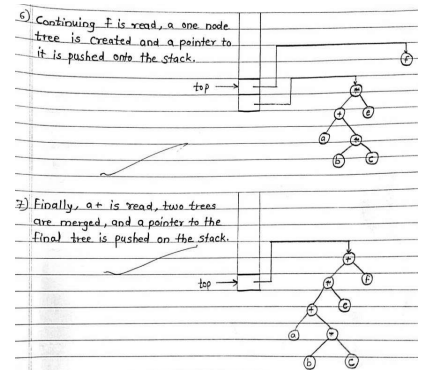 6) Continuing f is read, a one node
tree is created and a pointer to
it is pushed onto the stack.
top
f
*
+
e
a
*
b
c
7) Finally, a + is read, two trees
are merged, and a pointer to the
final tree is pushed on the stack.
top
+
f
*
e
+
a
*
b
c